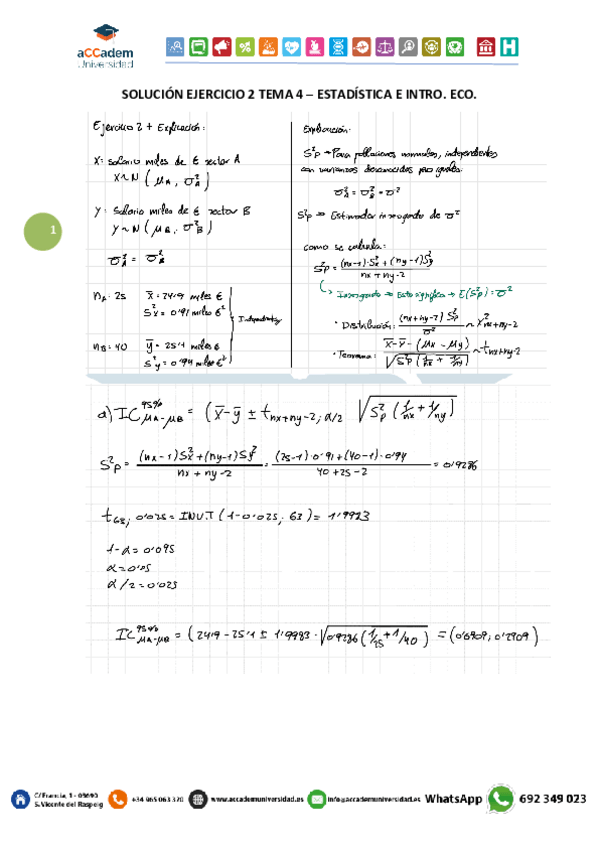 aCCadem
Universidad
SOLUCIÓN EJERCICIO 2 TEMA 4 – ESTADÍSTICA E INTRO. ECO.
1
Ejercicio 2 + Explicación:
X: Salario miles de € sector A
X∼N (μA, σ²A)
Y: Salario miles de € sector B
Y∼N (μB, σ²B)
σ²A = σ²B
nA: 25 x̄ = 24'9 miles €
S²x = 0'91 miles €²
nB = 40 ȳ = 25'1 miles €
S²y = 0'94 miles €²
Independientes
Explicación:
S²p → Para poblaciones normales, independientes
con varianzas desconocidas pero iguales.
σ²A = σ²B = σ²
S²p ⇒ Estimador insesgado de σ²
como se calcula:
S²p = (nx-1)·S²x + (ny-1)S²y / nx + ny - 2
↳ Insesgado → Esto significa → E(S²p) = σ²
· Distribución: (nx+ny-2) S²p / σ² ∼ χ²nx+ny-2
· Teorema: x̄-ȳ - (μx - μy) / √S²p (1/nx + 1/ny) ∼ tnx+ny-2
a) IC 95% μA-μB = (x̄-ȳ ± tnx+ny-2; α/2 √S²p (1/nx + 1/ny))
S²p = (nx-1) S²x + (ny-1) S²y / nx + ny - 2 = (25-1)·0'91 + (40-1)·0'94 / 40 + 25 - 2 = 0'9286
t63; 0'025 = INV.T (1-0'025; 63) = 1'9983
1-α = 0'095
α = 0'05
α/2 = 0'025
IC 95% μA-μB = (24'9 - 25'1 ± 1'9983 · √0'9286 (1/25 + 1/40)) = (0'6909; 0'2909)
C/ Francia, 1 - 03690
S. Vicente del Raspeig
+34 965 063 320
www.accademuniversidad.es
info@accademuniversidad.es
WhatsApp
692 349 023